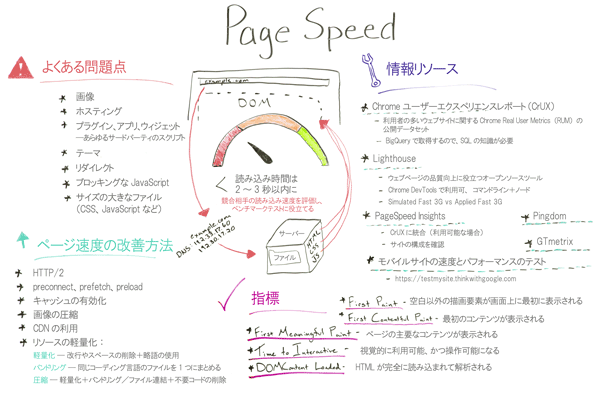 Page Speed
よくある問題点
画像
ホスティング
プラグイン、アプリ、ウィジェット
—あらゆるサードパーティのスクリプト
テーマ
リダイレクト
ブロッキングな JavaScript
サイズの大きなファイル
(CSS、JavaScript など)
ページ速度の改善方法
HTTP/2
preconnect, prefetch, preload
キャッシュの有効化
画像の圧縮
CDN の利用
リソースの軽量化：
軽量化 — 改行やスペースの削除＋略語の使用
バンドリング — 同じコーディング言語のファイルを 1 つにまとめる
圧縮 — 軽量化＋バンドリング／ファイル連結＋不要コードの削除
example.com
DOM
読み込み時間は
2 〜 3 秒以内に
競合相手の読み込み速度を評価し、
ベンチマークテストに役立てる
example.com
DNS
サーバー
ファイル
HTML
JS
情報リソース
Chrome ユーザーエクスペリエンスレポート（CrUX）
— 利用者の多いウェブサイトに関する Chrome Real User Metrics （RUM）の
公開データセット
— BigQuery で取得するので、SQL の知識が必要
Lighthouse
— ウェブページの品質向上に役立つオープンソースツール
— Chrome DevTools で利用可。 コマンドライン＋ノード
— Simulated Fast 3G vs Applied Fast 3G
PageSpeed Insights
— CrUX に統合（利用可能な場合）
— サイトの構成を確認
Pingdom
GTmetrix
モバイルサイトの速度とパフォーマンスのテスト
— https://testmysite.thinkwithgoogle.com
指標
First Paint - 空白以外の描画要素が画面上に最初に表示される
First Contentful Paint - 最初のコンテンツが表示される
First Meaningful Paint - ページの主要なコンテンツが表示される
Time to Interactive - 視覚的に利用可能、かつ操作可能になる
DOMContent Loaded - HTML が完全に読み込まれて解析される